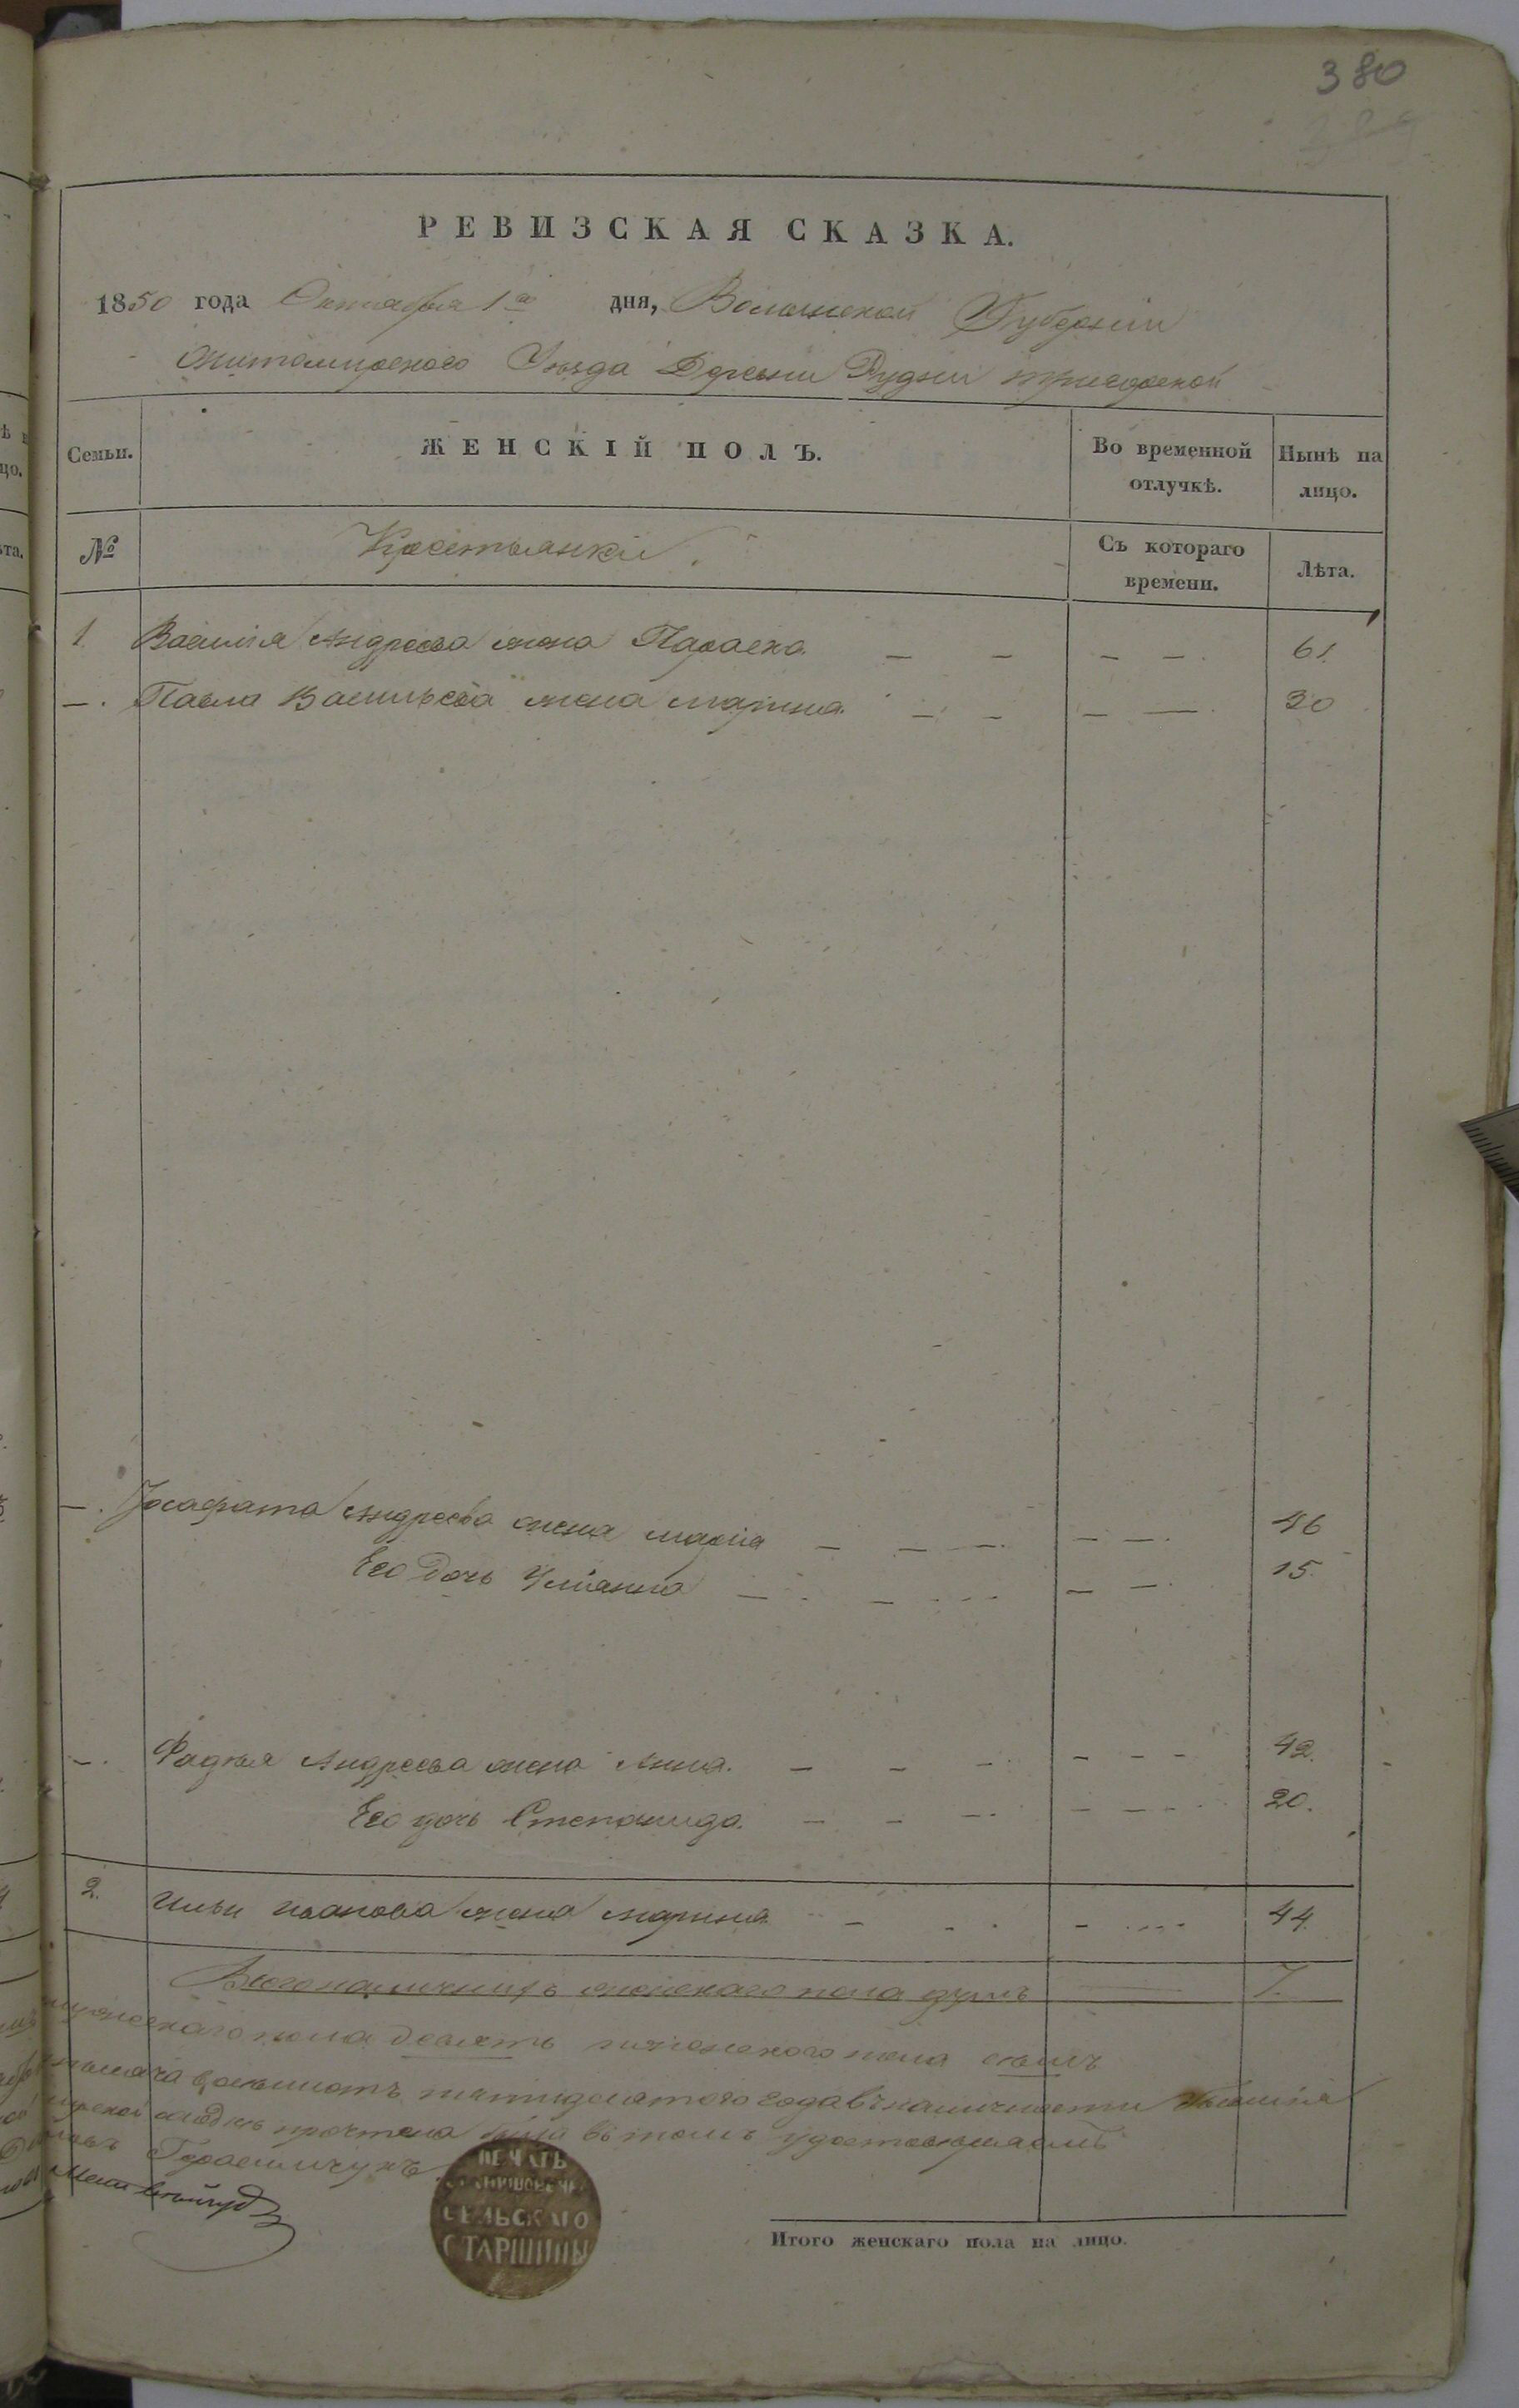 380
РЕВИЗСКАЯ СКАЗКА.
1850 года Октября 1го дня, Волынской Губернии
Житомирского Уезда Деревни Рудни
Семьи. ЖЕНСКІЙ ПОЛЪ. Во временной отлучкѣ. Нынѣ на лицо.
№ Крестьянки. Съ котораго времени. Лѣта.
1 Василія Андреева жена Параска. — — — — . 61.
— . Павла Васильева жена марина. — — — — . 30
— . Іосафата Андреева жена марія — — — . — — . 46
Его дочь Уліанна — . — . . . — — . 15.
— . Фадѣя Андреева жена Анна. — — — . - - - 42.
Его дочь Степанида. — — — . - - - 20.
2. Ильи иванова жена марина — . . - . . . . 44.
Всего наличныхъ женскаго пола душъ — 7.
мужескаго пола девять и женскаго пола семь
тысяча восемьсотъ пятидесятого года въ наличности
прочтена была въ томъ удостоверяемъ
Герасимчукъ
ПЕЧАТЬ
СЕЛЬСКАГО
СТАРШИНЫ
Итого женскаго пола на лицо.